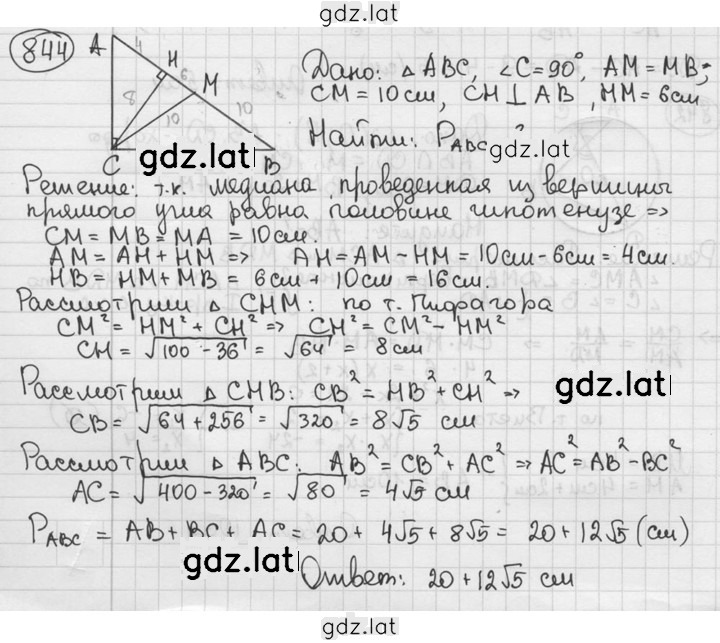 gdz.lat
844
A
4
H
6
M
8
10
10
C
B
Дано: △ ABC, ∠C=90°, AM=MB;
CM=10см, CH⊥AB, HM=6см
Найти: P_ABC ?
gdz.lat
Решение: т.к. медиана, проведенная из вершины
прямого угла равна половине гипотенузе ⇒
CM=MB=MA = 10см.
AM=AH+HM ⇒ AH=AM-HM=10см-6см=4см.
HB=HM+MB= 6см+10см=16см.
Рассмотрим △ CHM: по т. Пифагора
CM²=HM²+CH² ⇒ CH²=CM²-HM²
CH=√100-36=√64=8см
gdz.lat
Рассмотрим △ CHB: CB²=HB²+CH² ⇒
CB=√64+256=√320=8√5 см
Рассмотрим △ ABC: AB²=CB²+AC² ⇒ AC²=AB²-BC²
AC=√400-320=√80=4√5 см
P_ABC = AB+BC+AC=20+4√5+8√5=20+12√5(см)
gdz.lat
Ответ: 20+12√5 см
gdz.lat